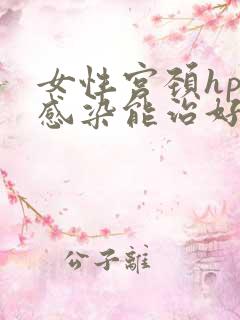 女性宫颈hp
感染能治好
公子離